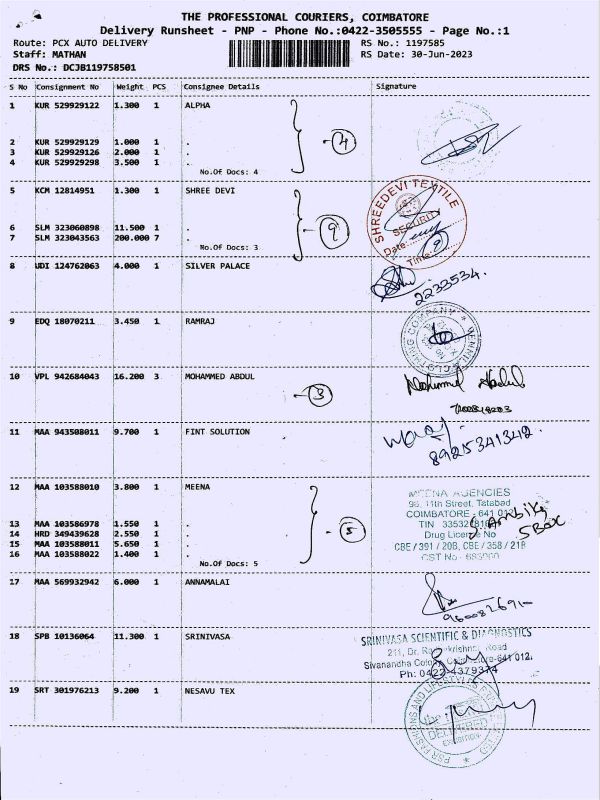 THE PROFESSIONAL COURIERS, COIMBATORE
Delivery Runsheet - PNP - Phone No.:0422-3505555 - Page No.:1
Route: PCX AUTO DELIVERY RS No.: 1197585
Staff: MATHAN RS Date: 30-Jun-2023
DRS No.: DCJB119758501
S No Consignment No Weight PCS Consignee Details Signature
1 KUR 529929122 1.300 1 ALPHA
2 KUR 529929129 1.000 1 .
3 KUR 529929126 2.000 1 .
4 KUR 529929298 3.500 1 .
4
No.Of Docs: 4
5 KCM 12814951 1.300 1 SHREE DEVI
6 SLM 323060898 11.500 1 .
7 SLM 323043563 200.000 7 .
9
No.Of Docs: 3
SHREEDEVI TEXTILE
SECURITY
Date:
Time: 9
8 UDI 124762063 4.000 1 SILVER PALACE
2233534.
9 EDQ 18070211 3.450 1 RAMRAJ
CLOTHING COMPANY
10 VPL 942684043 16.200 3 MOHAMMED ABDUL
3
Mohammed Abdul
11 MAA 943508011 9.700 1 FINT SOLUTION
8925341342.
12 MAA 103588010 3.800 1 MEENA
13 MAA 103586978 1.550 1 .
14 HRD 349439628 2.550 1 .
15 MAA 103588011 5.650 1 .
16 MAA 103588022 1.400 1 .
5
No.Of Docs: 5
MEENA AGENCIES
96, 11th Street, Tatabad
COIMBATORE - 641 012
TIN 33532
Drug License No
CBE / 391 / 20B, CBE / 358 / 21B
CST No.
5 Box
17 MAA 569932942 6.000 1 ANNAMALAI
18 SPB 10136064 11.300 1 SRINIVASA
SRINIVASA SCIENTIFIC & DIAGNOSTICS
211, Dr. Radhakrishnan Road
Sivanandha Colony, Coimbatore-641 012.
Ph: 0422-4379374
19 SRT 301976213 9.200 1 NESAVU TEX
DELIVERED